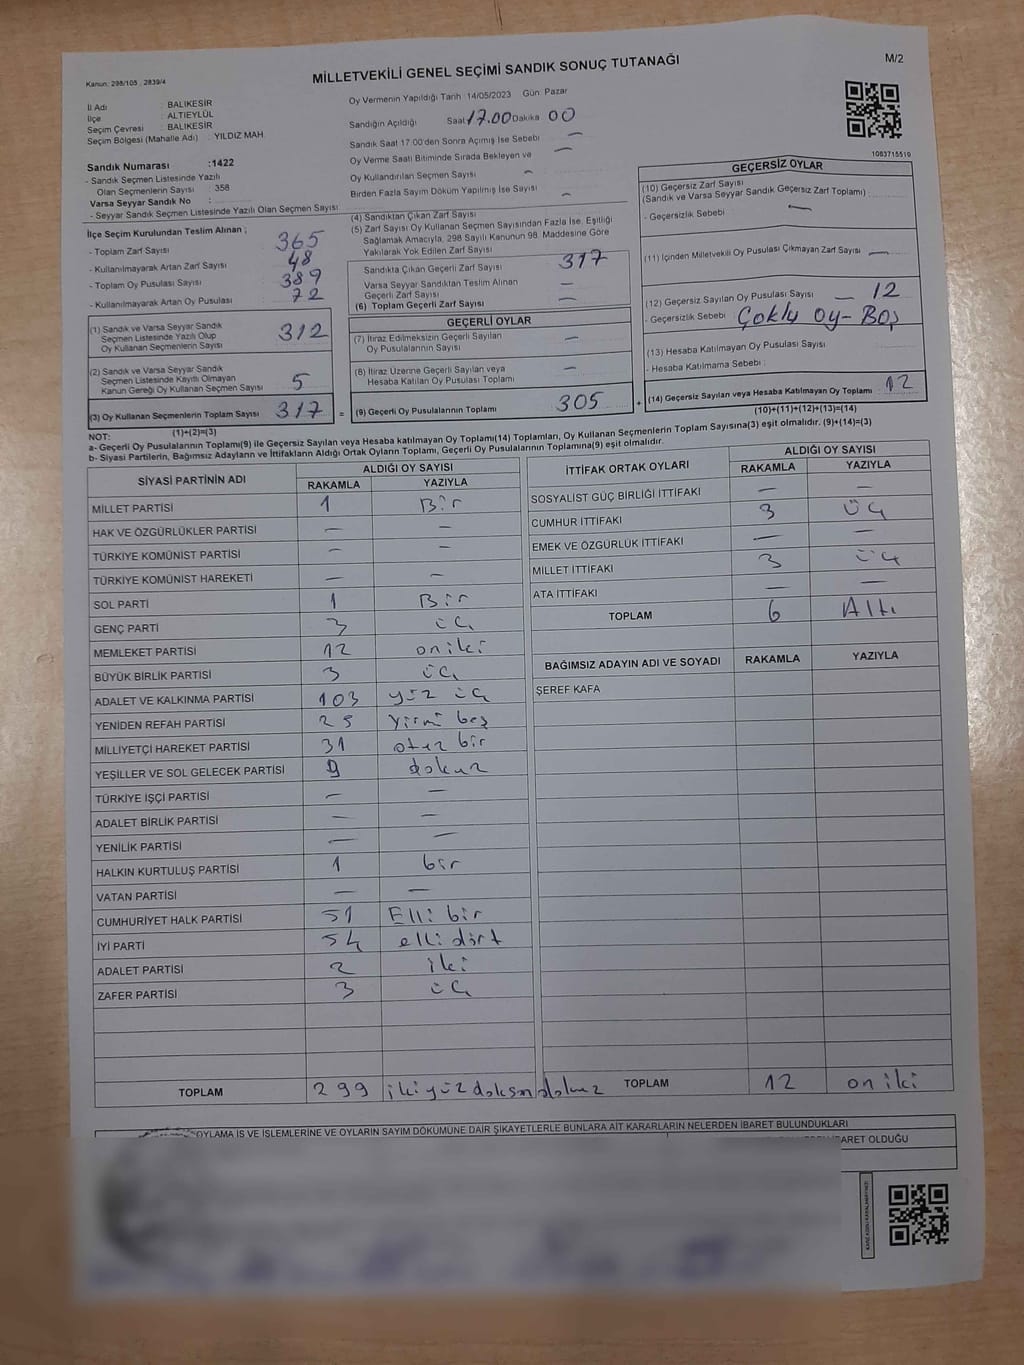 Kanun: 298/105 , 2839/4
MİLLETVEKİLİ GENEL SEÇİMİ SANDIK SONUÇ TUTANAĞI
M/2
İl Adı : BALIKESİR
İlçe : ALTIEYLÜL
Seçim Çevresi : BALIKESİR
Seçim Bölgesi (Mahalle Adı) : YILDIZ MAH.
Sandık Numarası :1422
- Sandık Seçmen Listesinde Yazılı
Olan Seçmenlerin Sayısı : 358
Varsa Seyyar Sandık No :
- Seyyar Sandık Seçmen Listesinde Yazılı Olan Seçmen Sayısı:
Oy Vermenin Yapıldığı Tarih :14/05/2023 Gün: Pazar
Sandığın Açıldığı Saat 17.00 Dakika 00
Sandık Saat 17:00'den Sonra Açımış İse Sebebi —
Oy Verme Saati Bitiminde Sırada Bekleyen ve —
Oy Kullandırılan Seçmen Sayısı —
Birden Fazla Sayım Döküm Yapılmış İse Sayısı —
1063715519
İlçe Seçim Kurulundan Teslim Alınan ;
- Toplam Zarf Sayısı : 365
- Kullanılmayarak Artan Zarf Sayısı : 48
- Toplam Oy Pusulası Sayısı : 389
- Kullanılmayarak Artan Oy Pusulası : 72
(1) Sandık ve Varsa Seyyar Sandık
Seçmen Listesinde Yazılı Olup
Oy Kullanan Seçmenlerin Sayısı 312
(2) Sandık ve Varsa Seyyar Sandık
Seçmen Listesinde Kayıtlı Olmayan
Kanun Gereği Oy Kullanan Seçmen Sayısı 5
(3) Oy Kullanan Seçmenlerin Toplam Sayısı 317 =
(1)+(2)=(3)
(4) Sandıktan Çıkan Zarf Sayısı
(5) Zarf Sayısı Oy Kullanan Seçmen Sayısından Fazla İse, Eşitliği
Sağlamak Amacıyla, 298 Sayılı Kanunun 98. Maddesine Göre
Yakılarak Yok Edilen Zarf Sayısı
Sandıkta Çıkan Geçerli Zarf Sayısı 317
Varsa Seyyar Sandıktan Teslim Alınan
Geçerli Zarf Sayısı —
(6) Toplam Geçerli Zarf Sayısı —
GEÇERLİ OYLAR
(7) İtiraz Edilmeksizin Geçerli Sayılan
Oy Pusulalarının Sayısı —
(8) İtiraz Üzerine Geçerli Sayılan veya
Hesaba Katılan Oy Pusulası Toplamı —
(9) Geçerli Oy Pusulalarının Toplamı 305 +
GEÇERSİZ OYLAR
(10) Geçersiz Zarf Sayısı
(Sandık ve Varsa Seyyar Sandık Geçersiz Zarf Toplamı)
- Geçersizlik Sebebi : —
(11) İçinden Milletvekili Oy Pusulası Çıkmayan Zarf Sayısı —
(12) Geçersiz Sayılan Oy Pusulası Sayısı — 12
- Geçersizlik Sebebi : Çoklu oy - Boş
(13) Hesaba Katılmayan Oy Pusulası Sayısı
- Hesaba Katılmama Sebebi :
(14) Geçersiz Sayılan veya Hesaba Katılmayan Oy Toplamı 12
(10)+(11)+(12)+(13)=(14)
NOT:
a- Geçerli Oy Pusulalarının Toplamı(9) ile Geçersiz Sayılan veya Hesaba katılmayan Oy Toplamı(14) Toplamları, Oy Kullanan Seçmenlerin Toplam Sayısına(3) eşit olmalıdır. (9)+(14)=(3)
b- Siyasi Partilerin, Bağımsız Adayların ve İttifakların Aldığı Ortak Oyların Toplamı, Geçerli Oy Pusulalarının Toplamına(9) eşit olmalıdır.
SİYASİ PARTİNİN ADI ALDIĞI OY SAYISI
RAKAMLA YAZIYLA
MİLLET PARTİSİ 1 Bir
HAK VE ÖZGÜRLÜKLER PARTİSİ — —
TÜRKİYE KOMÜNİST PARTİSİ — —
TÜRKİYE KOMÜNİST HAREKETİ — —
SOL PARTİ 1 Bir
GENÇ PARTİ 3 üç
MEMLEKET PARTİSİ 12 on iki
BÜYÜK BİRLİK PARTİSİ 3 üç
ADALET VE KALKINMA PARTİSİ 103 yüz üç
YENİDEN REFAH PARTİSİ 25 yirmi beş
MİLLİYETÇİ HAREKET PARTİSİ 31 otuz bir
YEŞİLLER VE SOL GELECEK PARTİSİ 9 dokuz
TÜRKİYE İŞÇİ PARTİSİ — —
ADALET BİRLİK PARTİSİ — —
YENİLİK PARTİSİ — —
HALKIN KURTULUŞ PARTİSİ 1 bir
VATAN PARTİSİ — —
CUMHURİYET HALK PARTİSİ 51 Elli bir
İYİ PARTİ 54 elli dört
ADALET PARTİSİ 2 iki
ZAFER PARTİSİ 3 üç
TOPLAM 299 iki yüz doksan dokuz
İTTİFAK ORTAK OYLARI ALDIĞI OY SAYISI
RAKAMLA YAZIYLA
SOSYALIST GÜÇ BİRLİĞİ İTTİFAKI — —
CUMHUR İTTİFAKI 3 üç
EMEK VE ÖZGÜRLÜK İTTİFAKI — —
MİLLET İTTİFAKI 3 üç
ATA İTTİFAKI — —
TOPLAM 6 Altı
BAĞIMSIZ ADAYIN ADI VE SOYADI RAKAMLA YAZIYLA
ŞEREF KAFA
TOPLAM 12 on iki
OYLAMA İŞ VE İŞLEMLERİNE VE OYLARIN SAYIM DÖKÜMÜNE DAİR ŞİKAYETLERLE BUNLARA AİT KARARLARIN NELERDEN İBARET BULUNDUKLARI
BARET OLDUĞU